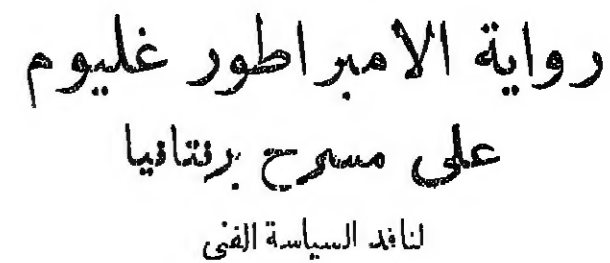 رواية الامبراطور غليوم
على مسرح برنتانيا
لناقد السياسة الفنى